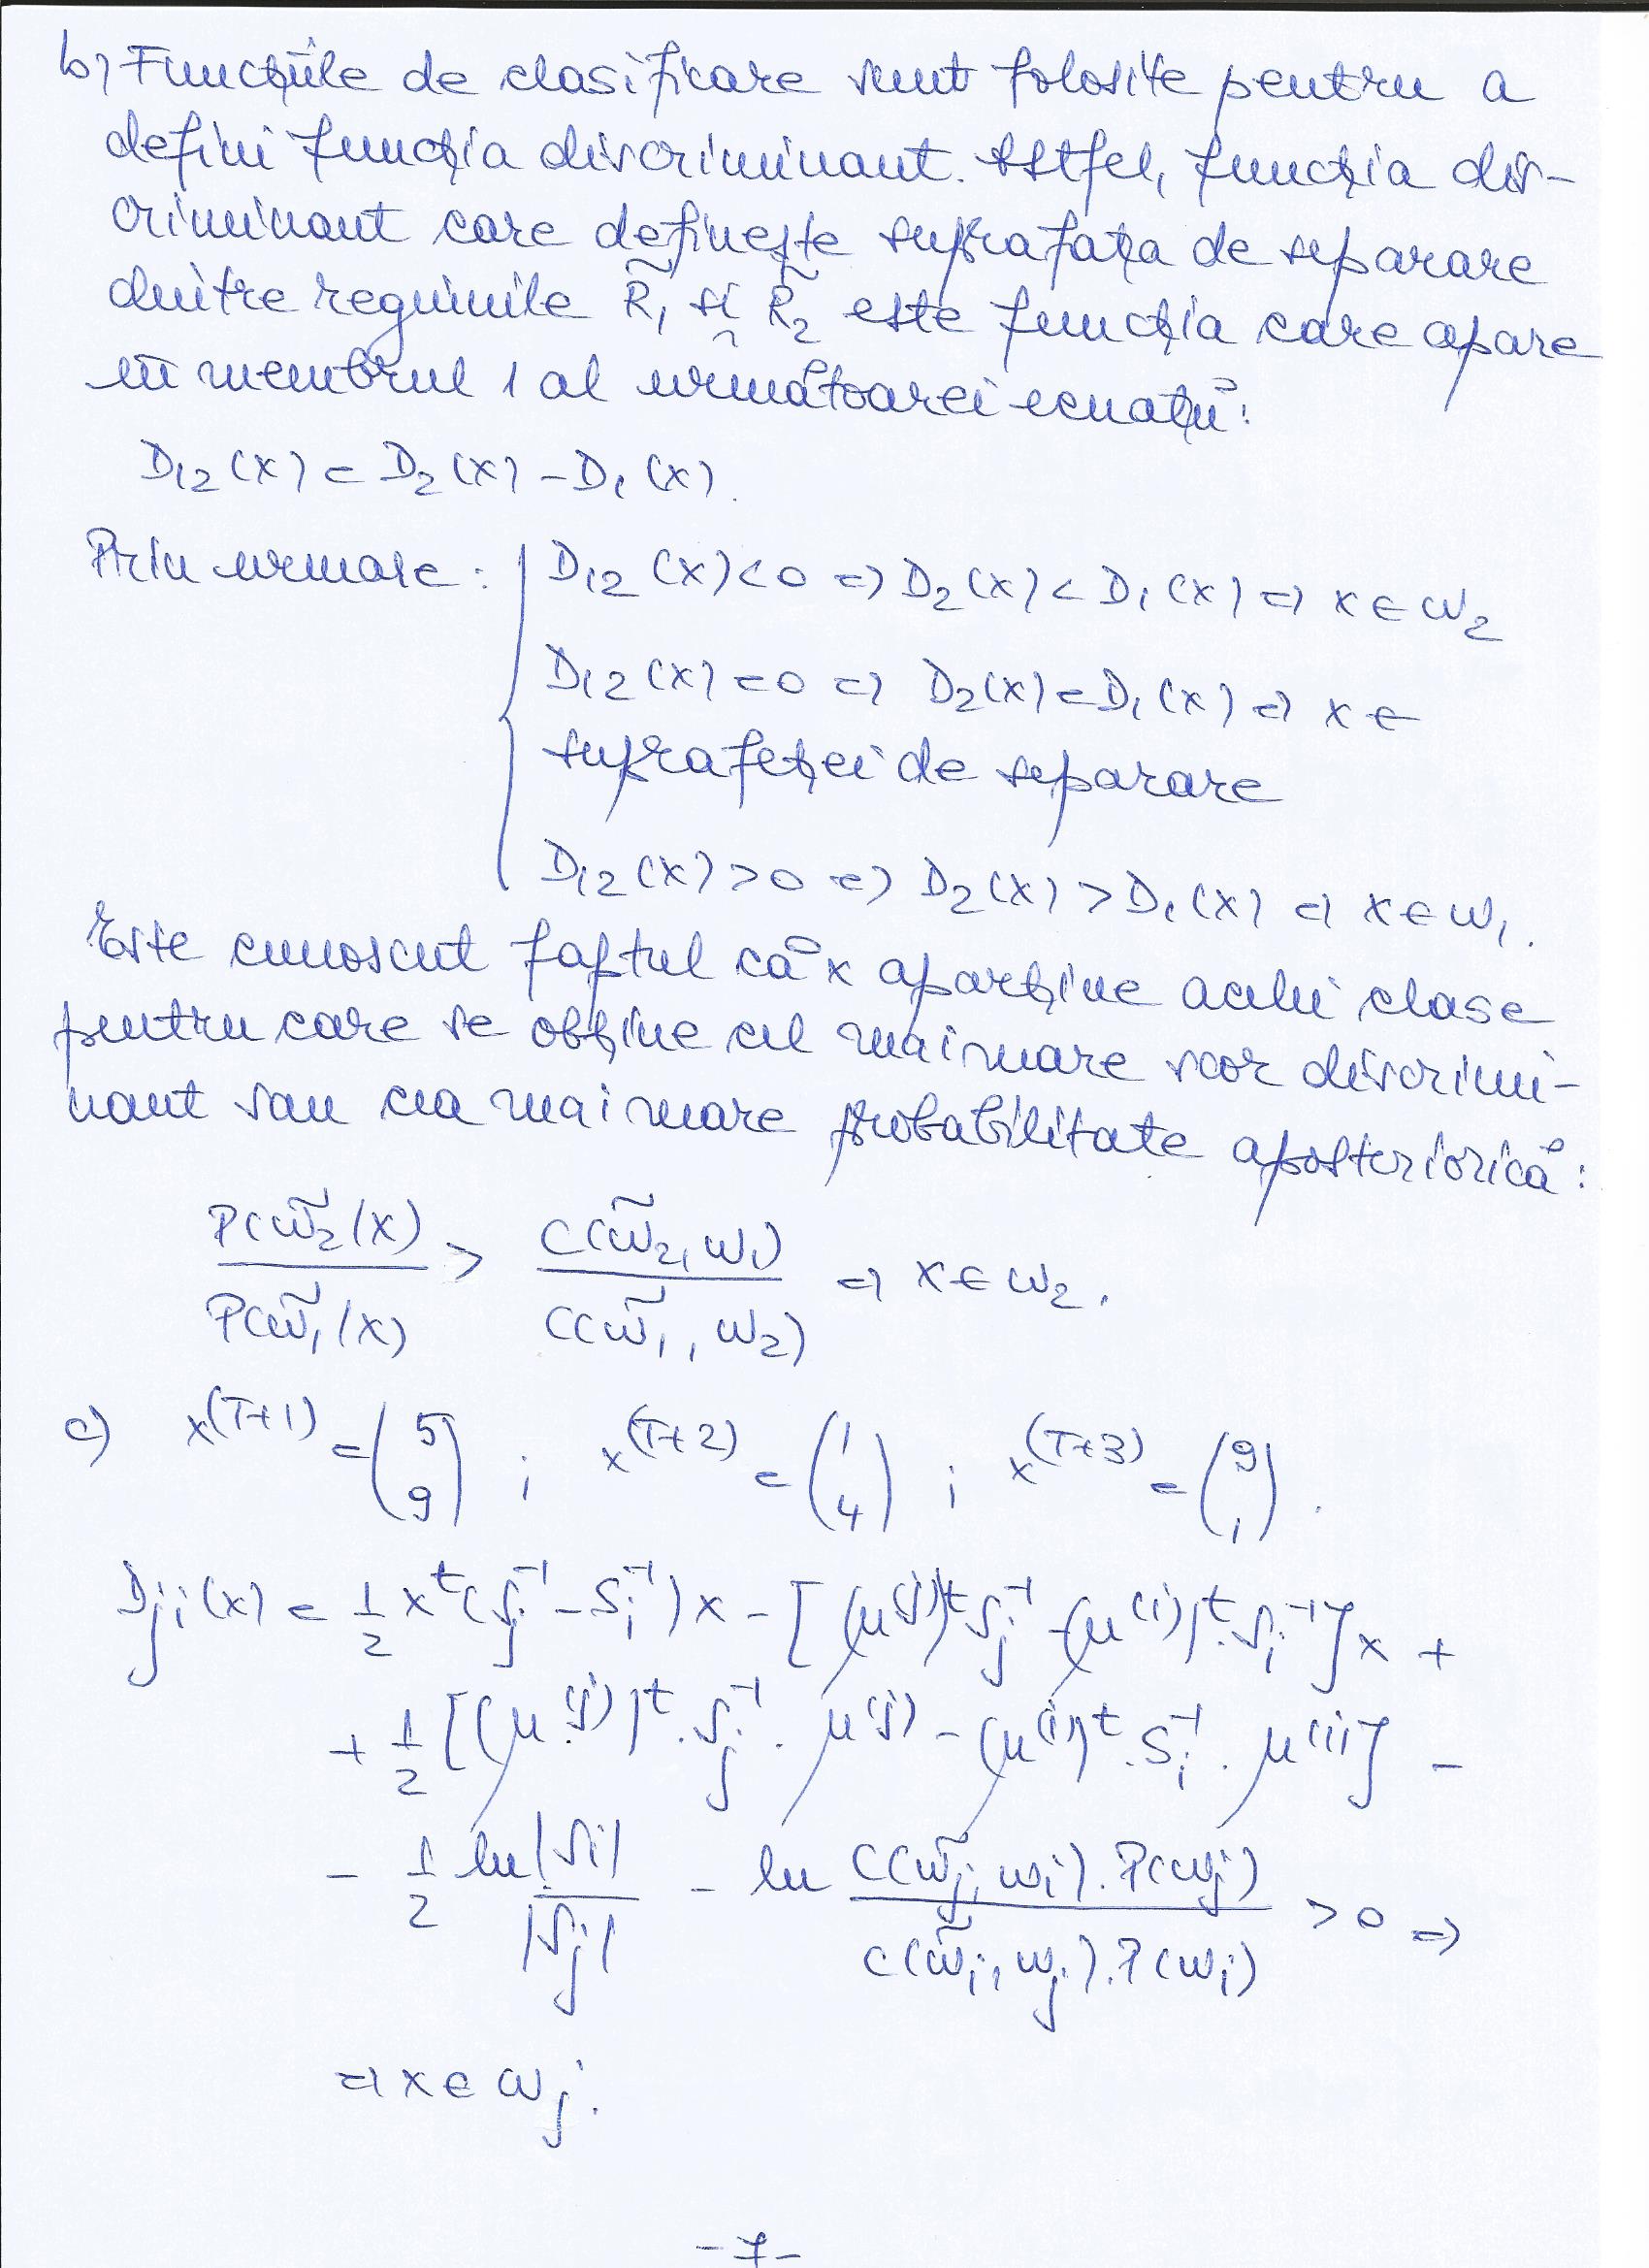 b) Funcțiile de clasificare sunt folosite pentru a
defini funcția discriminant. Astfel, funcția dis-
criminant care definește suprafața de separare
dintre regiunile R̃₁ și R̃₂ este funcția care apare
în membrul 1 al următoarei ecuații:
D₁₂(x) = D₂(x) - D₁(x).
Prin urmare: { D₁₂(x) < 0 => D₂(x) < D₁(x) => x ∈ ω₂
D₁₂(x) = 0 => D₂(x) = D₁(x) => x ∈
suprafeței de separare
D₁₂(x) > 0 => D₂(x) > D₁(x) => x ∈ ω₁.
Este cunoscut faptul că x aparține acelei clase
pentru care se obține cel mai mare scor discrimi-
nant sau cea mai mare probabilitate aposteriorică:
P(ω̃₂/x) / P(ω̃₁/x) > C(ω̃₂, ω₁) / C(ω̃₁, ω₂) => x ∈ ω₂.
c) x^(T+1) = (5 9) ; x^(T+2) = (1 4) ; x^(T+3) = (9 1).
Dji(x) = 1/2 x^t (Sj^-1 - Si^-1) x - [(μ^(j))^t Sj^-1 - (μ^(i))^t · Si^-1] x +
+ 1/2 [(μ^(j))^t · Sj^-1 · μ^(j) - (μ^(i))^t · Si^-1 · μ^(i)] -
- 1/2 ln |Si| / |Sj| - ln C(ω̃j, ωi) · P(ωj) / C(ω̃i, ωj) · P(ωi) > 0 =>
=> x ∈ ωj.
-7-